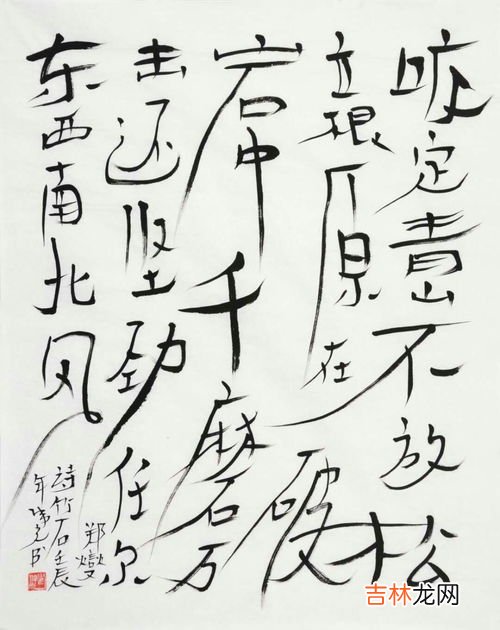 咬定青山不放松
立根原在破
岩中千磨万
击还坚劲任尔
东西南北风
郑燮
詩竹石壬辰
年书
吉林龙网